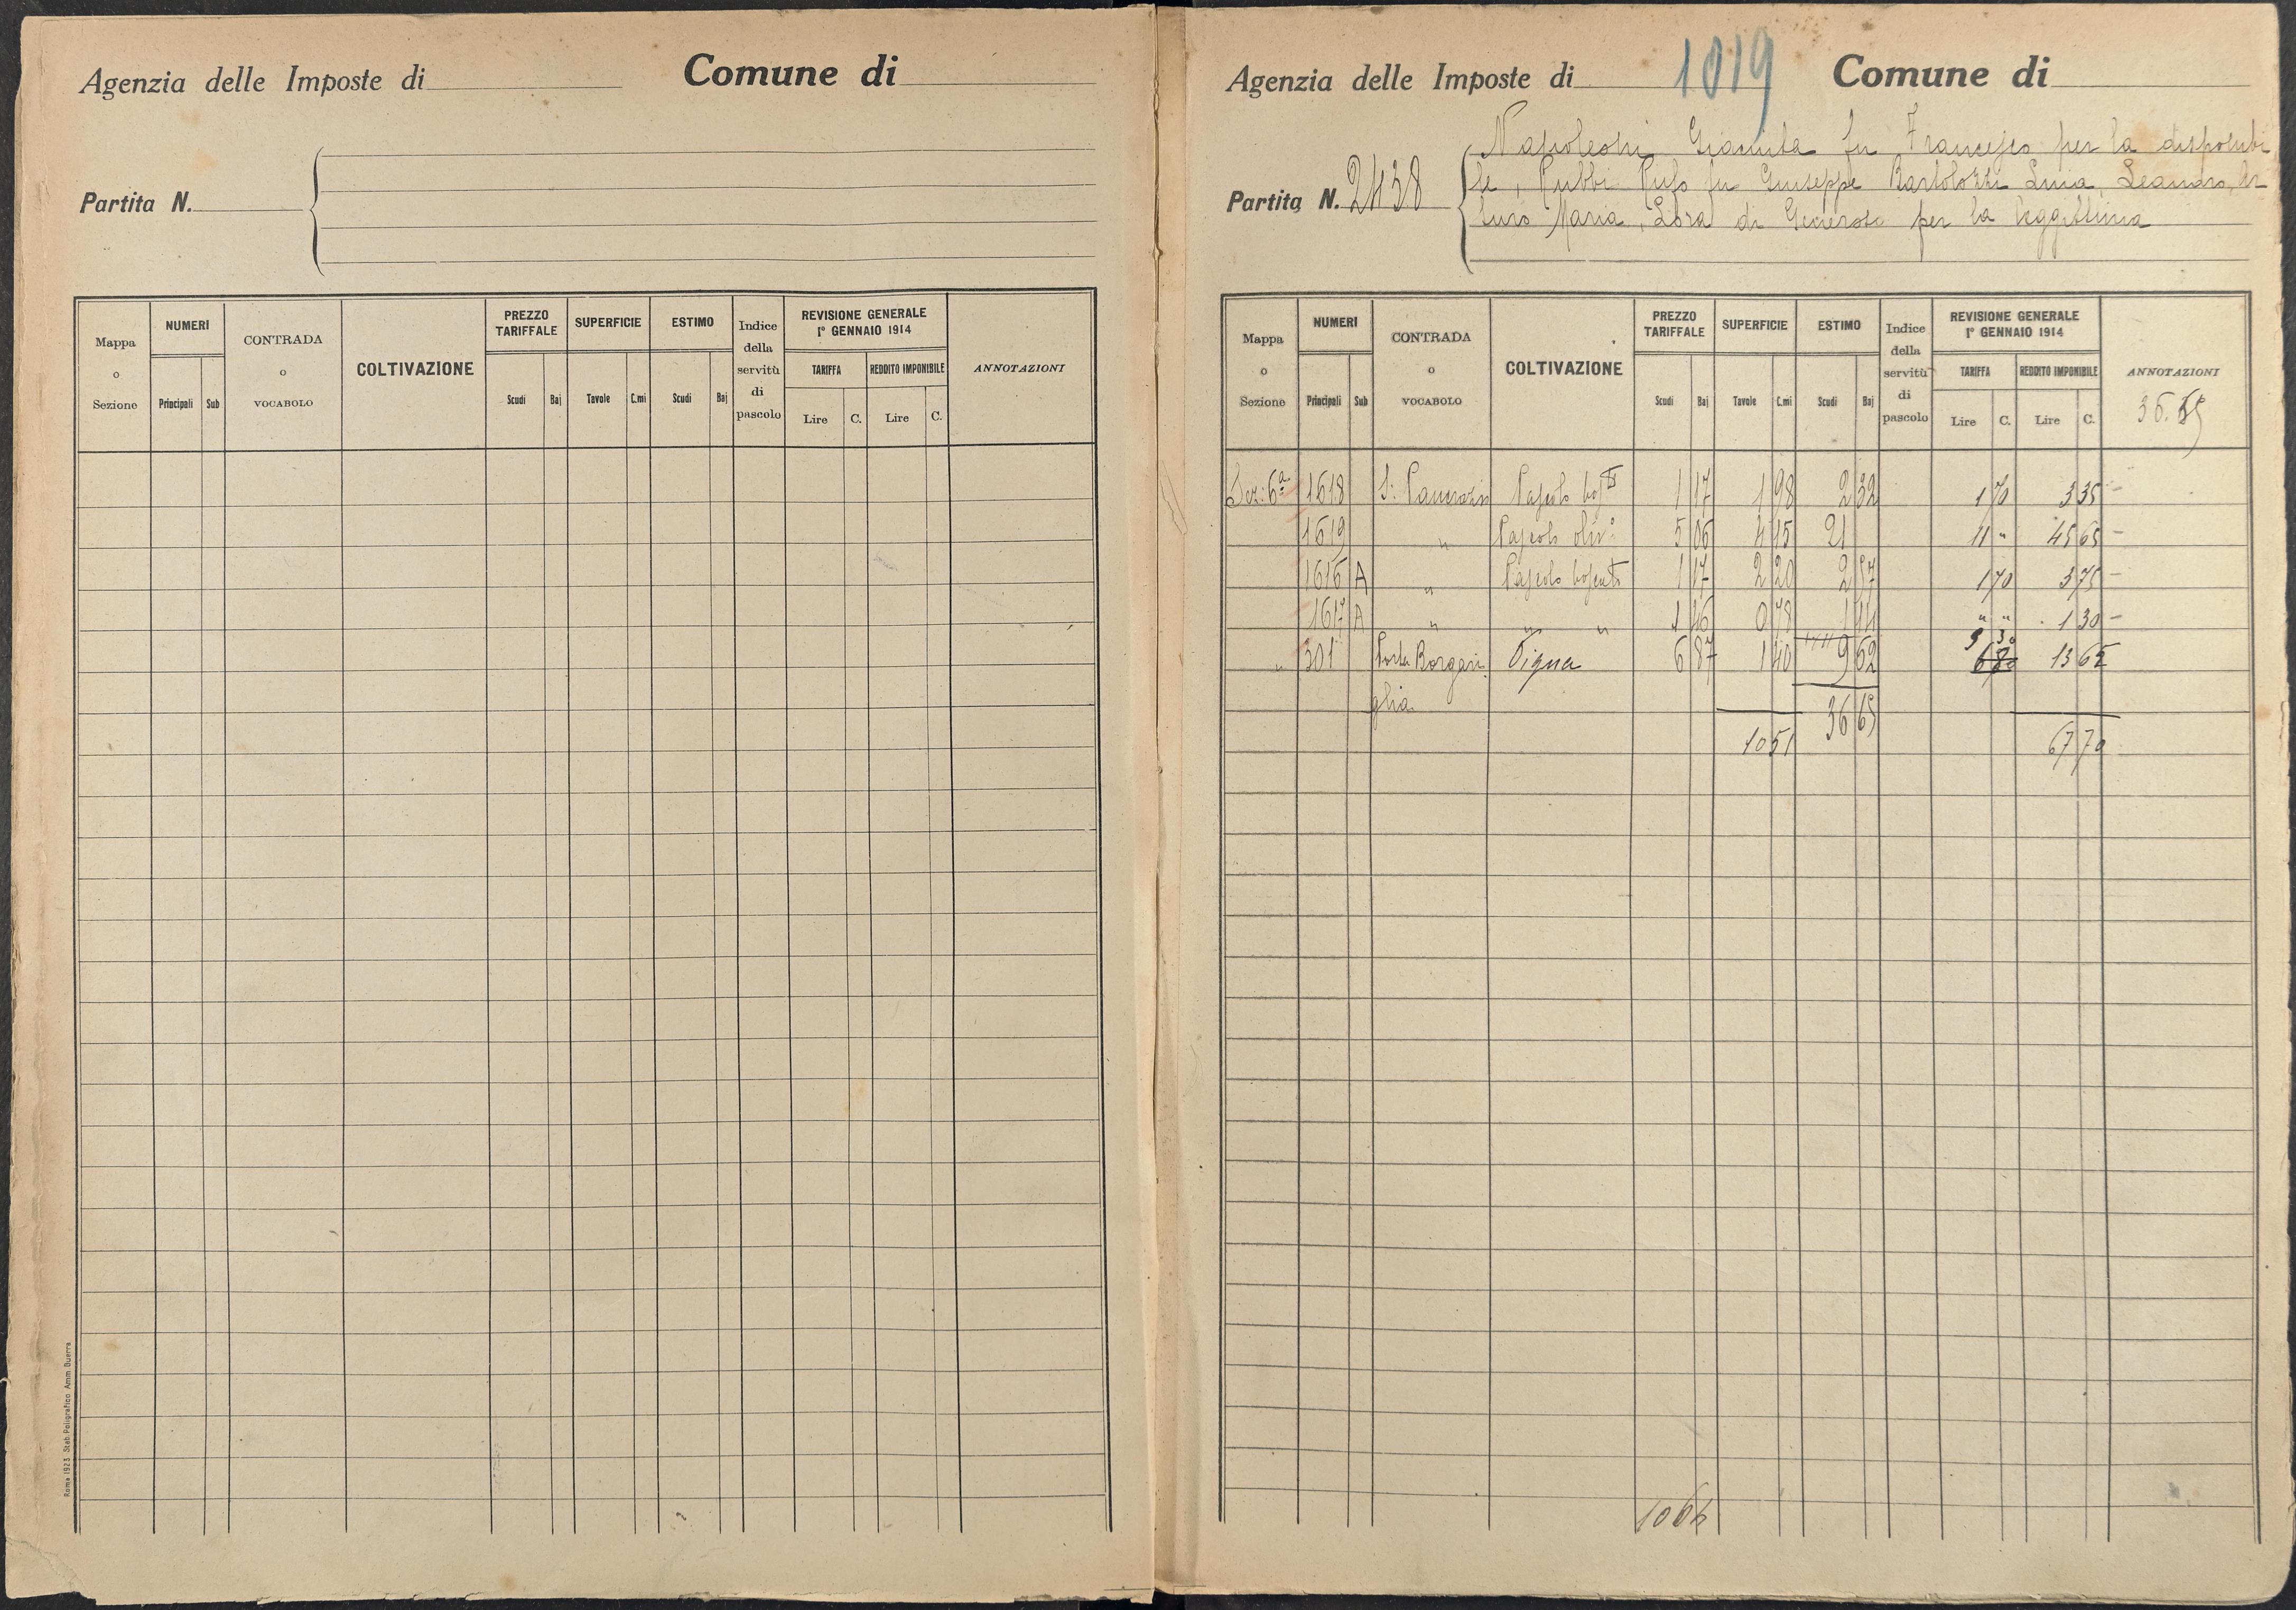 Agenzia delle Imposte di Comune di
Partita N.
Mappa o Sezione NUMERI Principali Sub CONTRADA o VOCABOLO COLTIVAZIONE PREZZO TARIFFALE Scudi Baj SUPERFICIE Tavole C.mi ESTIMO Scudi Baj Indice della servitù di pascolo REVISIONE GENERALE 1° GENNAIO 1914 TARIFFA Lire C. REDDITO IMPONIBILE Lire C. ANNOTAZIONI
Roma 1923. Stab. Poligrafico Amm. Guerra
Agenzia delle Imposte di 1019 Comune di
Napoleoni Giacinta fu Francesco per la disponibi
Partita N. 2438 le, Rubbi Rufo fu Giuseppe Bartolozzi Leandro, Ar
turo Maria, di Generoso per la leggittima
Mappa o Sezione NUMERI Principali Sub CONTRADA o VOCABOLO COLTIVAZIONE PREZZO TARIFFALE Scudi Baj SUPERFICIE Tavole C.mi ESTIMO Scudi Baj Indice della servitù di pascolo REVISIONE GENERALE 1° GENNAIO 1914 TARIFFA Lire C. REDDITO IMPONIBILE Lire C. ANNOTAZIONI
36.65
Sez: 6a 1618 S: Pancrazio Pascolo bosto 1 17 1 98 2 32 1 70 3 35 -
1619 " Pascolo oliv: 5 06 4 15 21 11 " 45 65 -
1616 A " Pascolo boscato 1 17 2 20 2 57 1 70 3 75 -
1617 A " " " 1 46 0 78 1 14 " " 1 30 -
9 30
" 301 Porta Borgari Vigna 6 87 1 40 9 62 6 80 13 65
glia 36 65
10 51 67 70
1064